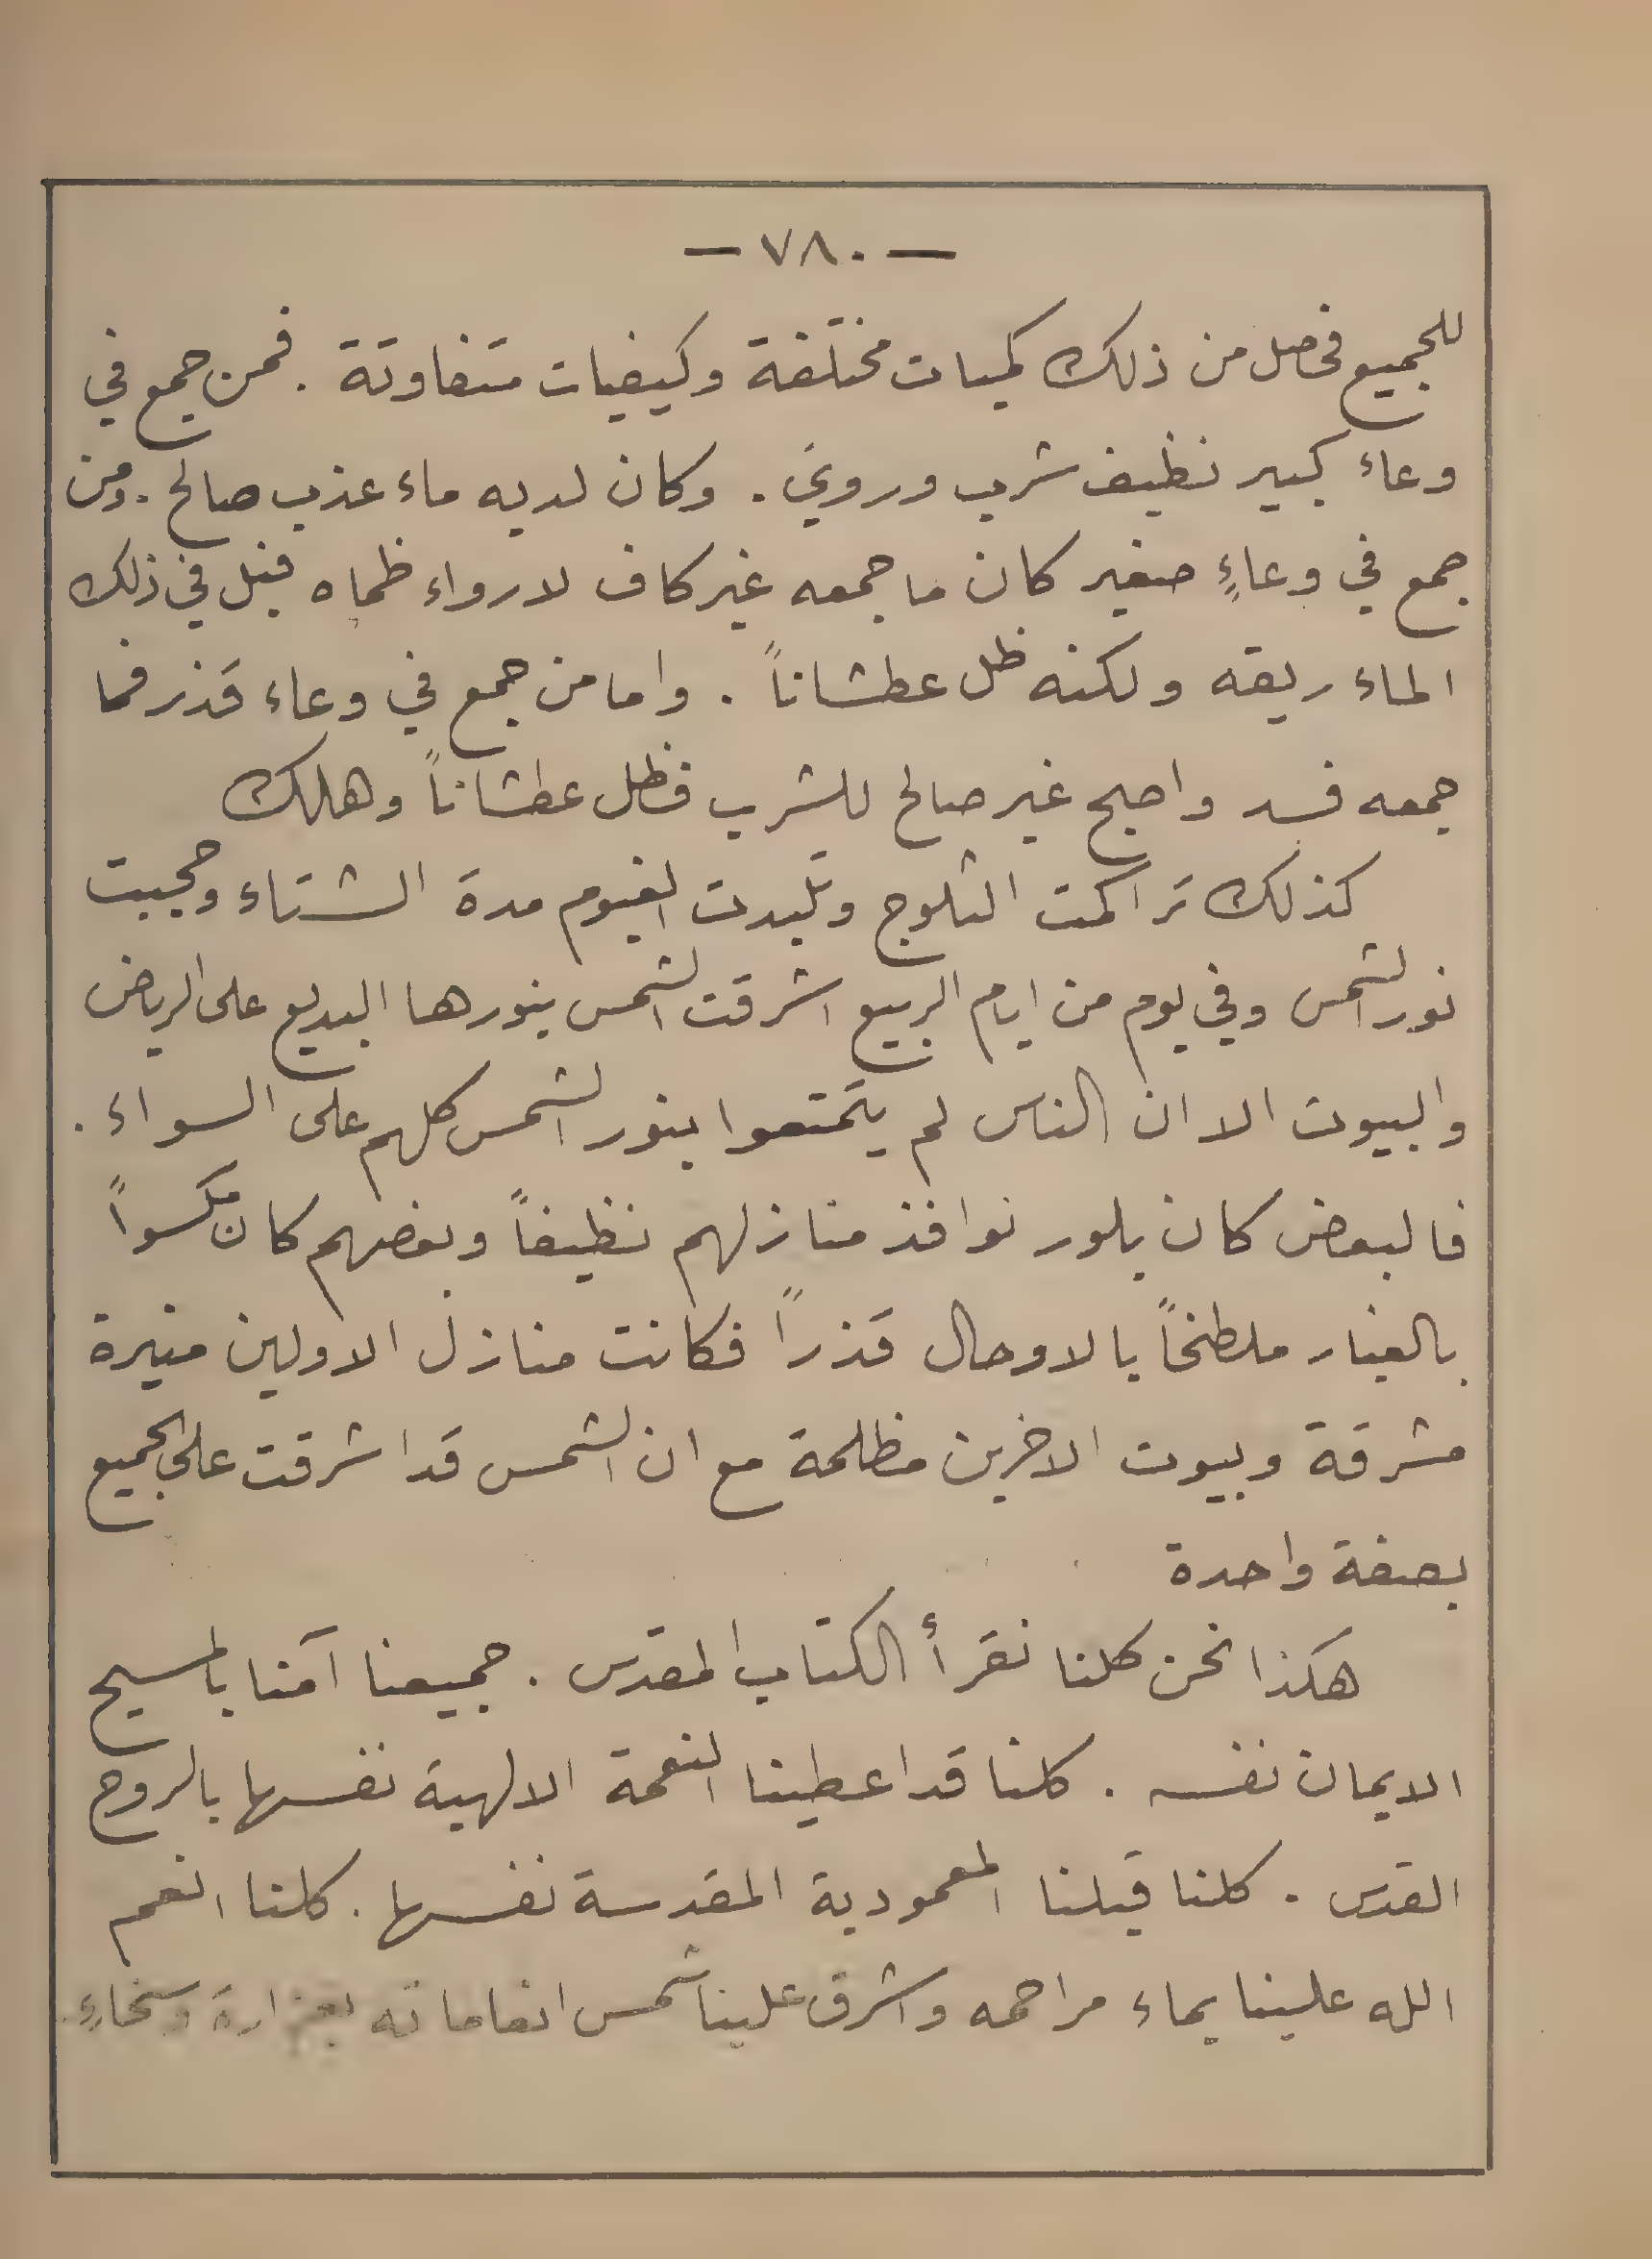 — ٧٨٠ —
للجميع فحصل من ذلك كميات مختلفة وكيفيات متفاوتة . فمن جمع في
وعاء كبير نظيف شرب وروي . وكان لديه ماء عذب صالح . ومن
جمع في وعاءٍ صغير كان ما جمعه غير كاف لارواء ظماه فبل في ذلك
الماء ريقه ولكنه ظل عطشاناً . واما من جمع في وعاء قذر فما
جمعه فسد واصبح غير صالح للشرب فظل عطشاناً وهلك
كذلك تراكمت الثلوج وتلبدت الغيوم مدة الشتاء وحجبت
نور الشمس وفي يوم من ايام الربيع اشرقت الشمس بنورها البديع على الرياض
والبيوت الا ان الناس لم يتمتعوا بنور الشمس كلهم على السواء .
فالبعض كان بلور نوافذ منازلهم نظيفاً وبعضهم كان مكسواً
بالغبار ملطخاً بالاوحال قذراً فكانت منازل الاولين منيرة
مشرقة وبيوت الاخرين مظلمة مع ان الشمس قد اشرقت على الجميع
بصفة واحدة
هكذا نحن كلنا نقرأ الكتاب المقدس . جميعنا آمنا بالمسيح
الايمان نفسه . كلنا قد اعطينا النعمة الالهية نفسها بالروح
القدس . كلنا قبلنا المعمودية المقدسة نفسها . كلنا انعم
الله علينا بماء مراحمه واشرق علينا شمس انعاماته بغزارة وسخاءٍ .